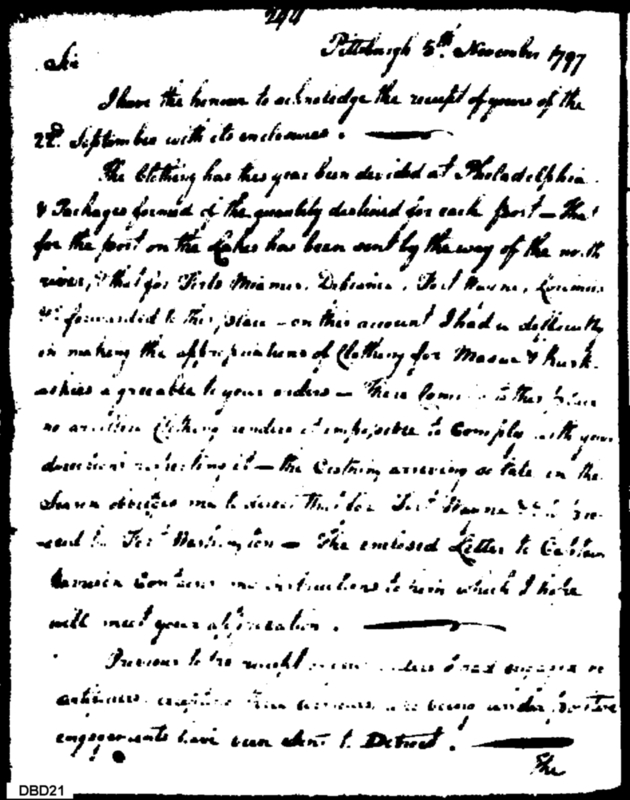 244
Pittsburgh 5th. November 1797
Sir
I have the honour to acknoledge the receipt of yours of the
22d. September with its enclosures.
The Clothing has this year been devided at Philadelphia
& Packages formed of the quantity destined for each post — That
for the post on the Lakes has been sent by the way of the north
river, & that for Forts Miamis, Defiance, Fort Wayne, Loramies
&c forwarded to this place — on this account I had a difficulty
in making the appropriations of Clothing for Massac & Kask-
askias agreeable to your orders — There to this place
no Clothing renders it impossible to Comply with your
directions respecting it — the Clothing arriving so late in the
Season obliges me to that for Fort Wayne &c
to Fort Washington — The enclosed Letter to Captain
Harrison Contains my instructions to him which I hope
will meet your approbation.
Previous to the receipt orders I had engaged
artificers, two being under positive
engagements have been sent to Detroit.
The
DBD21